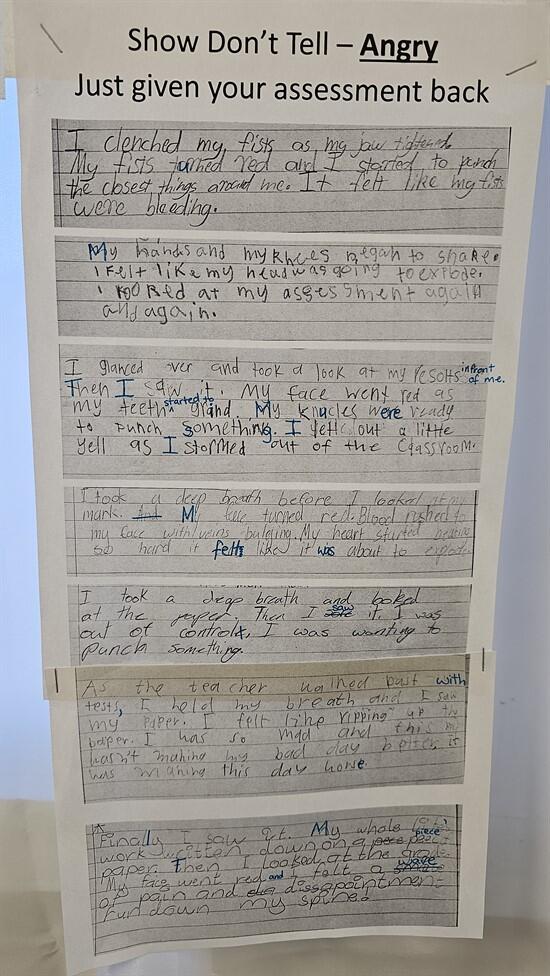 Show Don't Tell – Angry
Just given your assessment back
I clenched my fists as my jaw tightened.
My fists turned red and I started to punch
the closest things around me. It felt like my fists
were bleeding.
My hands and my knees began to shake.
I felt like my head was going to explode.
I looked at my assessment again
and again.
I glanced over and took a look at my results in front of me.
Then I saw it. My face went red as
my teeth started to grind. My knucles were ready
to punch something. I let out a little
yell as I stormed out of the classroom.
I took a deep breath before I looked at my
mark. And My face turned red. Blood rushed to
my face with veins bulging. My heart started beating
so hard it felt like it was about to explode.
I took a deep breath and looked
at the paper. Then I saw it. I was
out of control, I was wanting to
punch something.
As the teacher walked past with
tests, I held my breath and I saw
my paper. I felt like ripping up the
paper. I was so mad and this
wasn't making my bad day better it
was making this day worse.
Finally I saw it. My whole
work written down on a piece
paper. Then I looked at the grade
My face went red and I felt a wave
of pain and dissapointment
run down my spine.